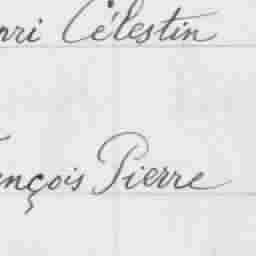 nri Célestin
ançois Pierre